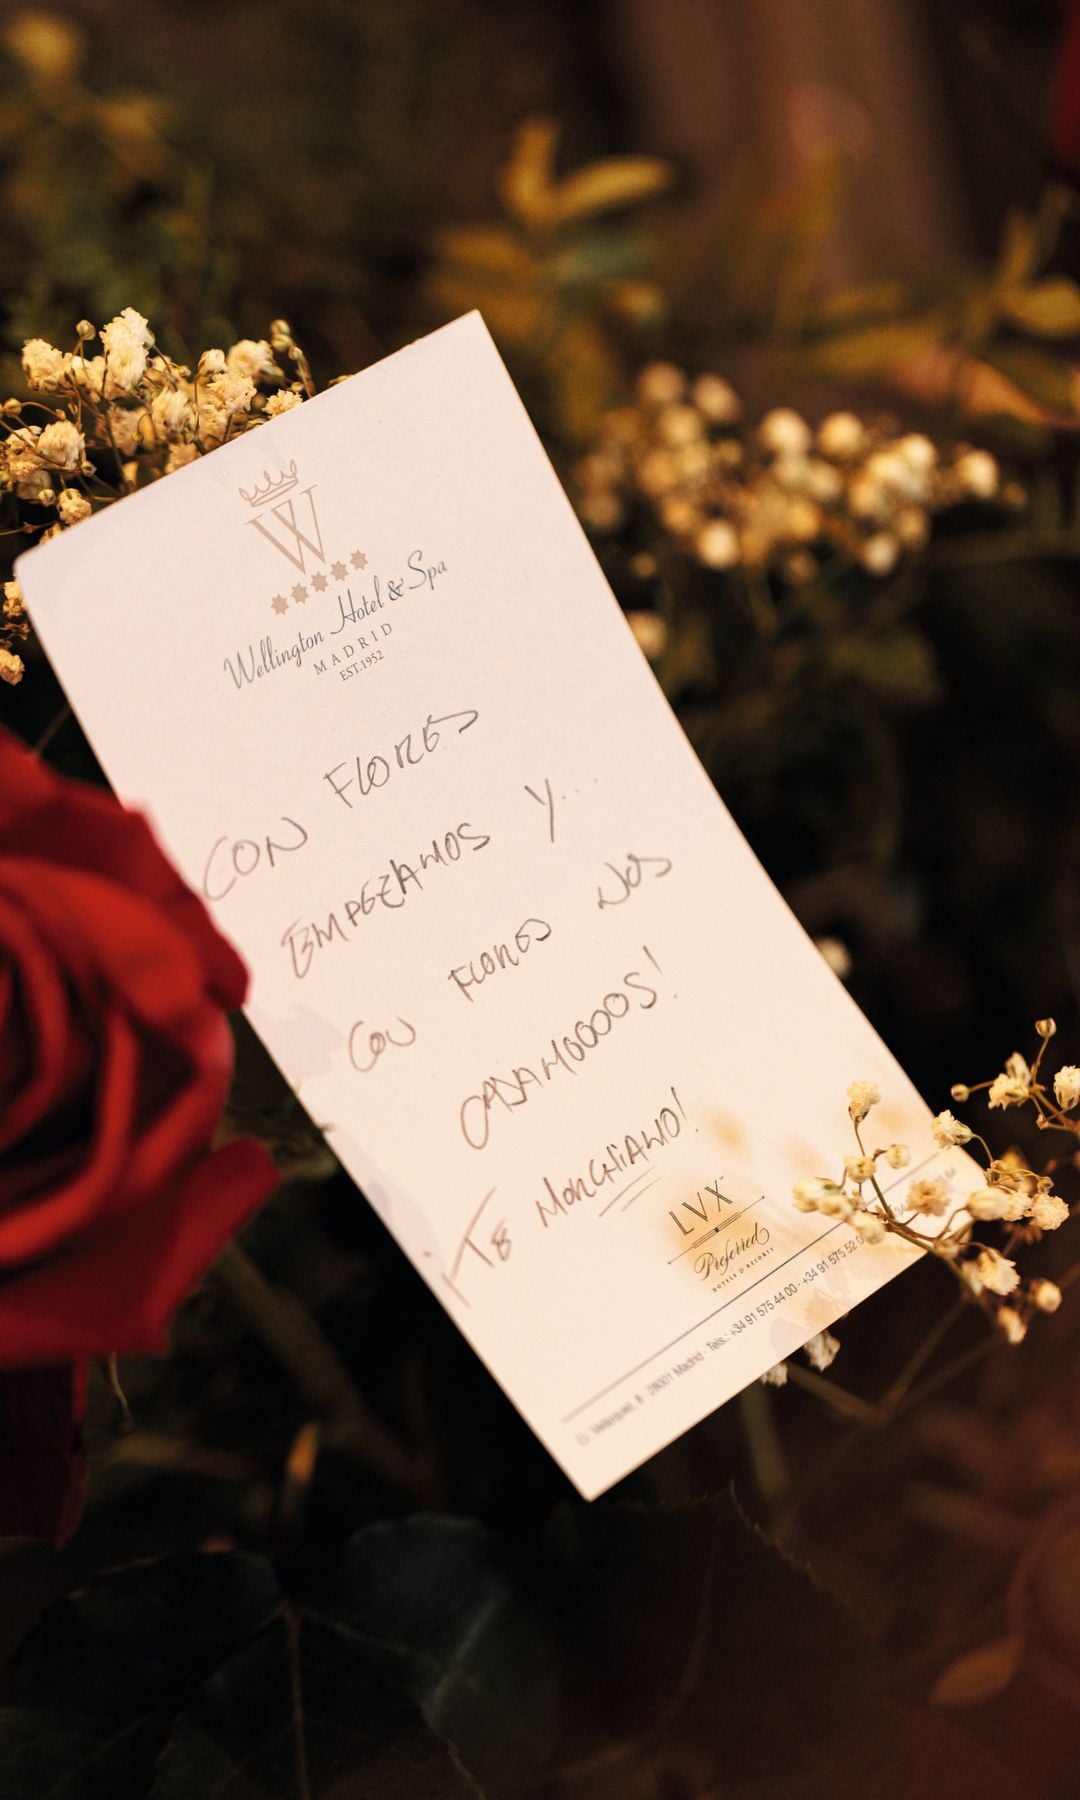 W
Wellington Hotel & Spa
MADRID
EST.1952
CON FLORES
EMPEZAMOS Y...
CON FLORES NOS
CASAMOOOOS!
¡TE MONGHIAMO!
LVX
Preferred
HOTELS & RESORTS
8 · 28001 Madrid · Tels.: +34 91 575 44 00 · +34 91 575 52 0